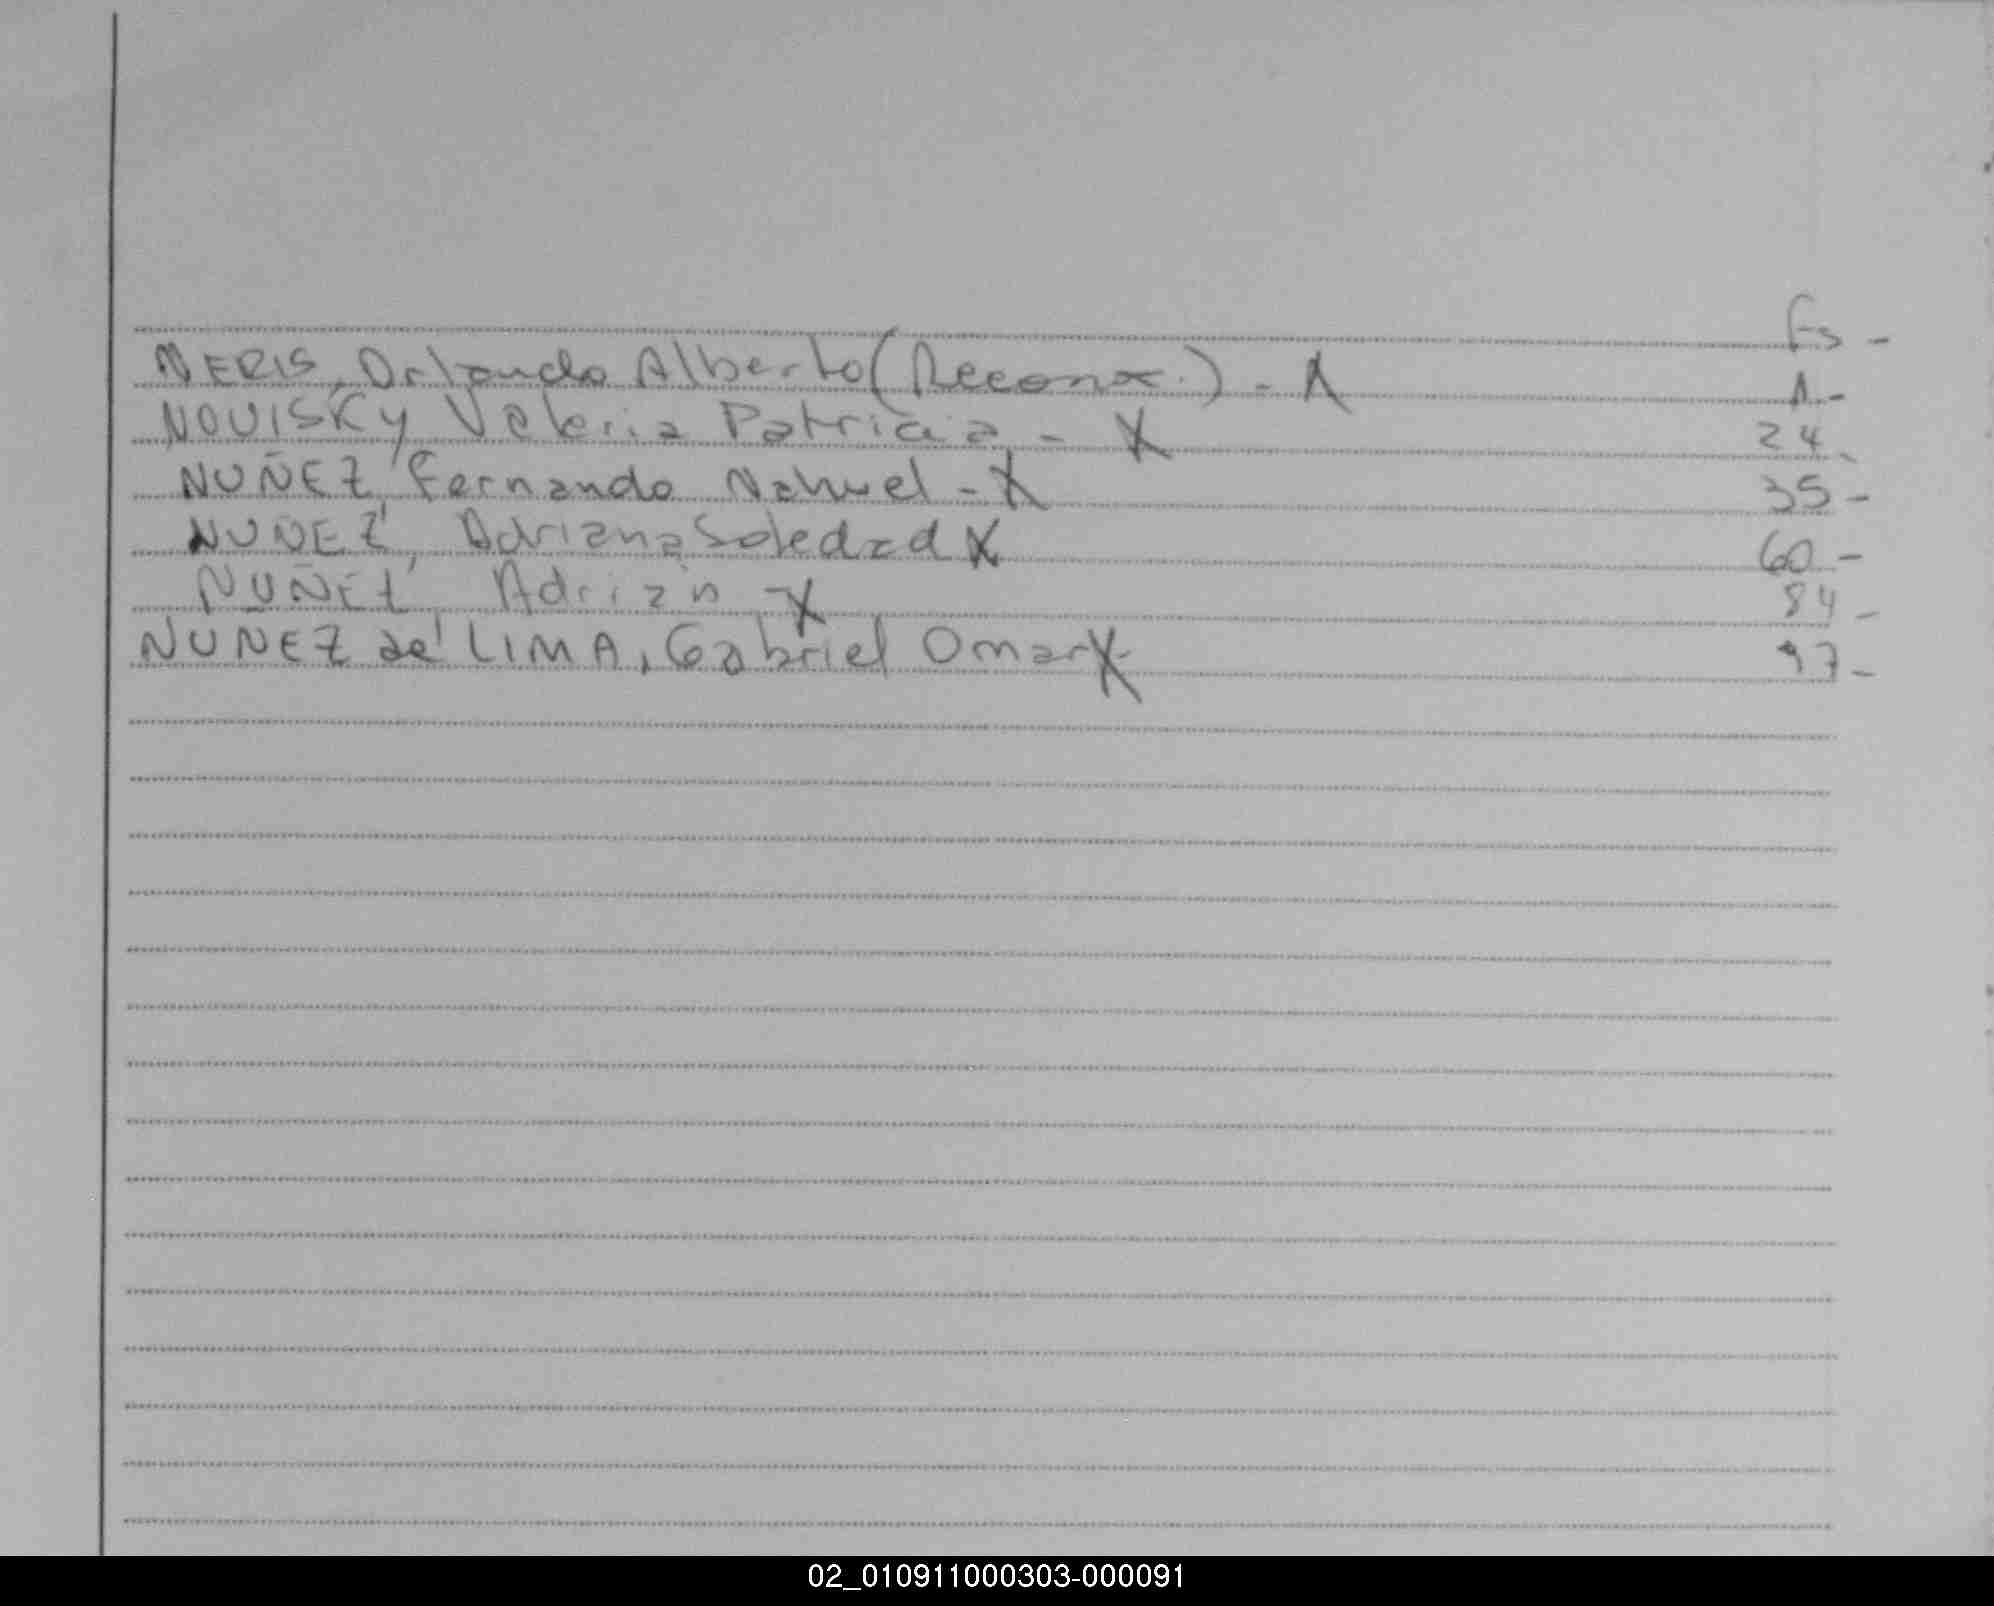 Fs -
NERIS, Orlando Alberto (Reconx.) - X 1 -
NOUISKY Valeria Patricia - X 24 -
NUÑEZ, Fernando Nahuel - X 35 -
NUÑEZ, Adriana Soledad X 60 -
NUÑEZ, Adrián - X 84 -
NUNEZ de LIMA, Gabriel Omar X 97 -
02_010911000303-000091